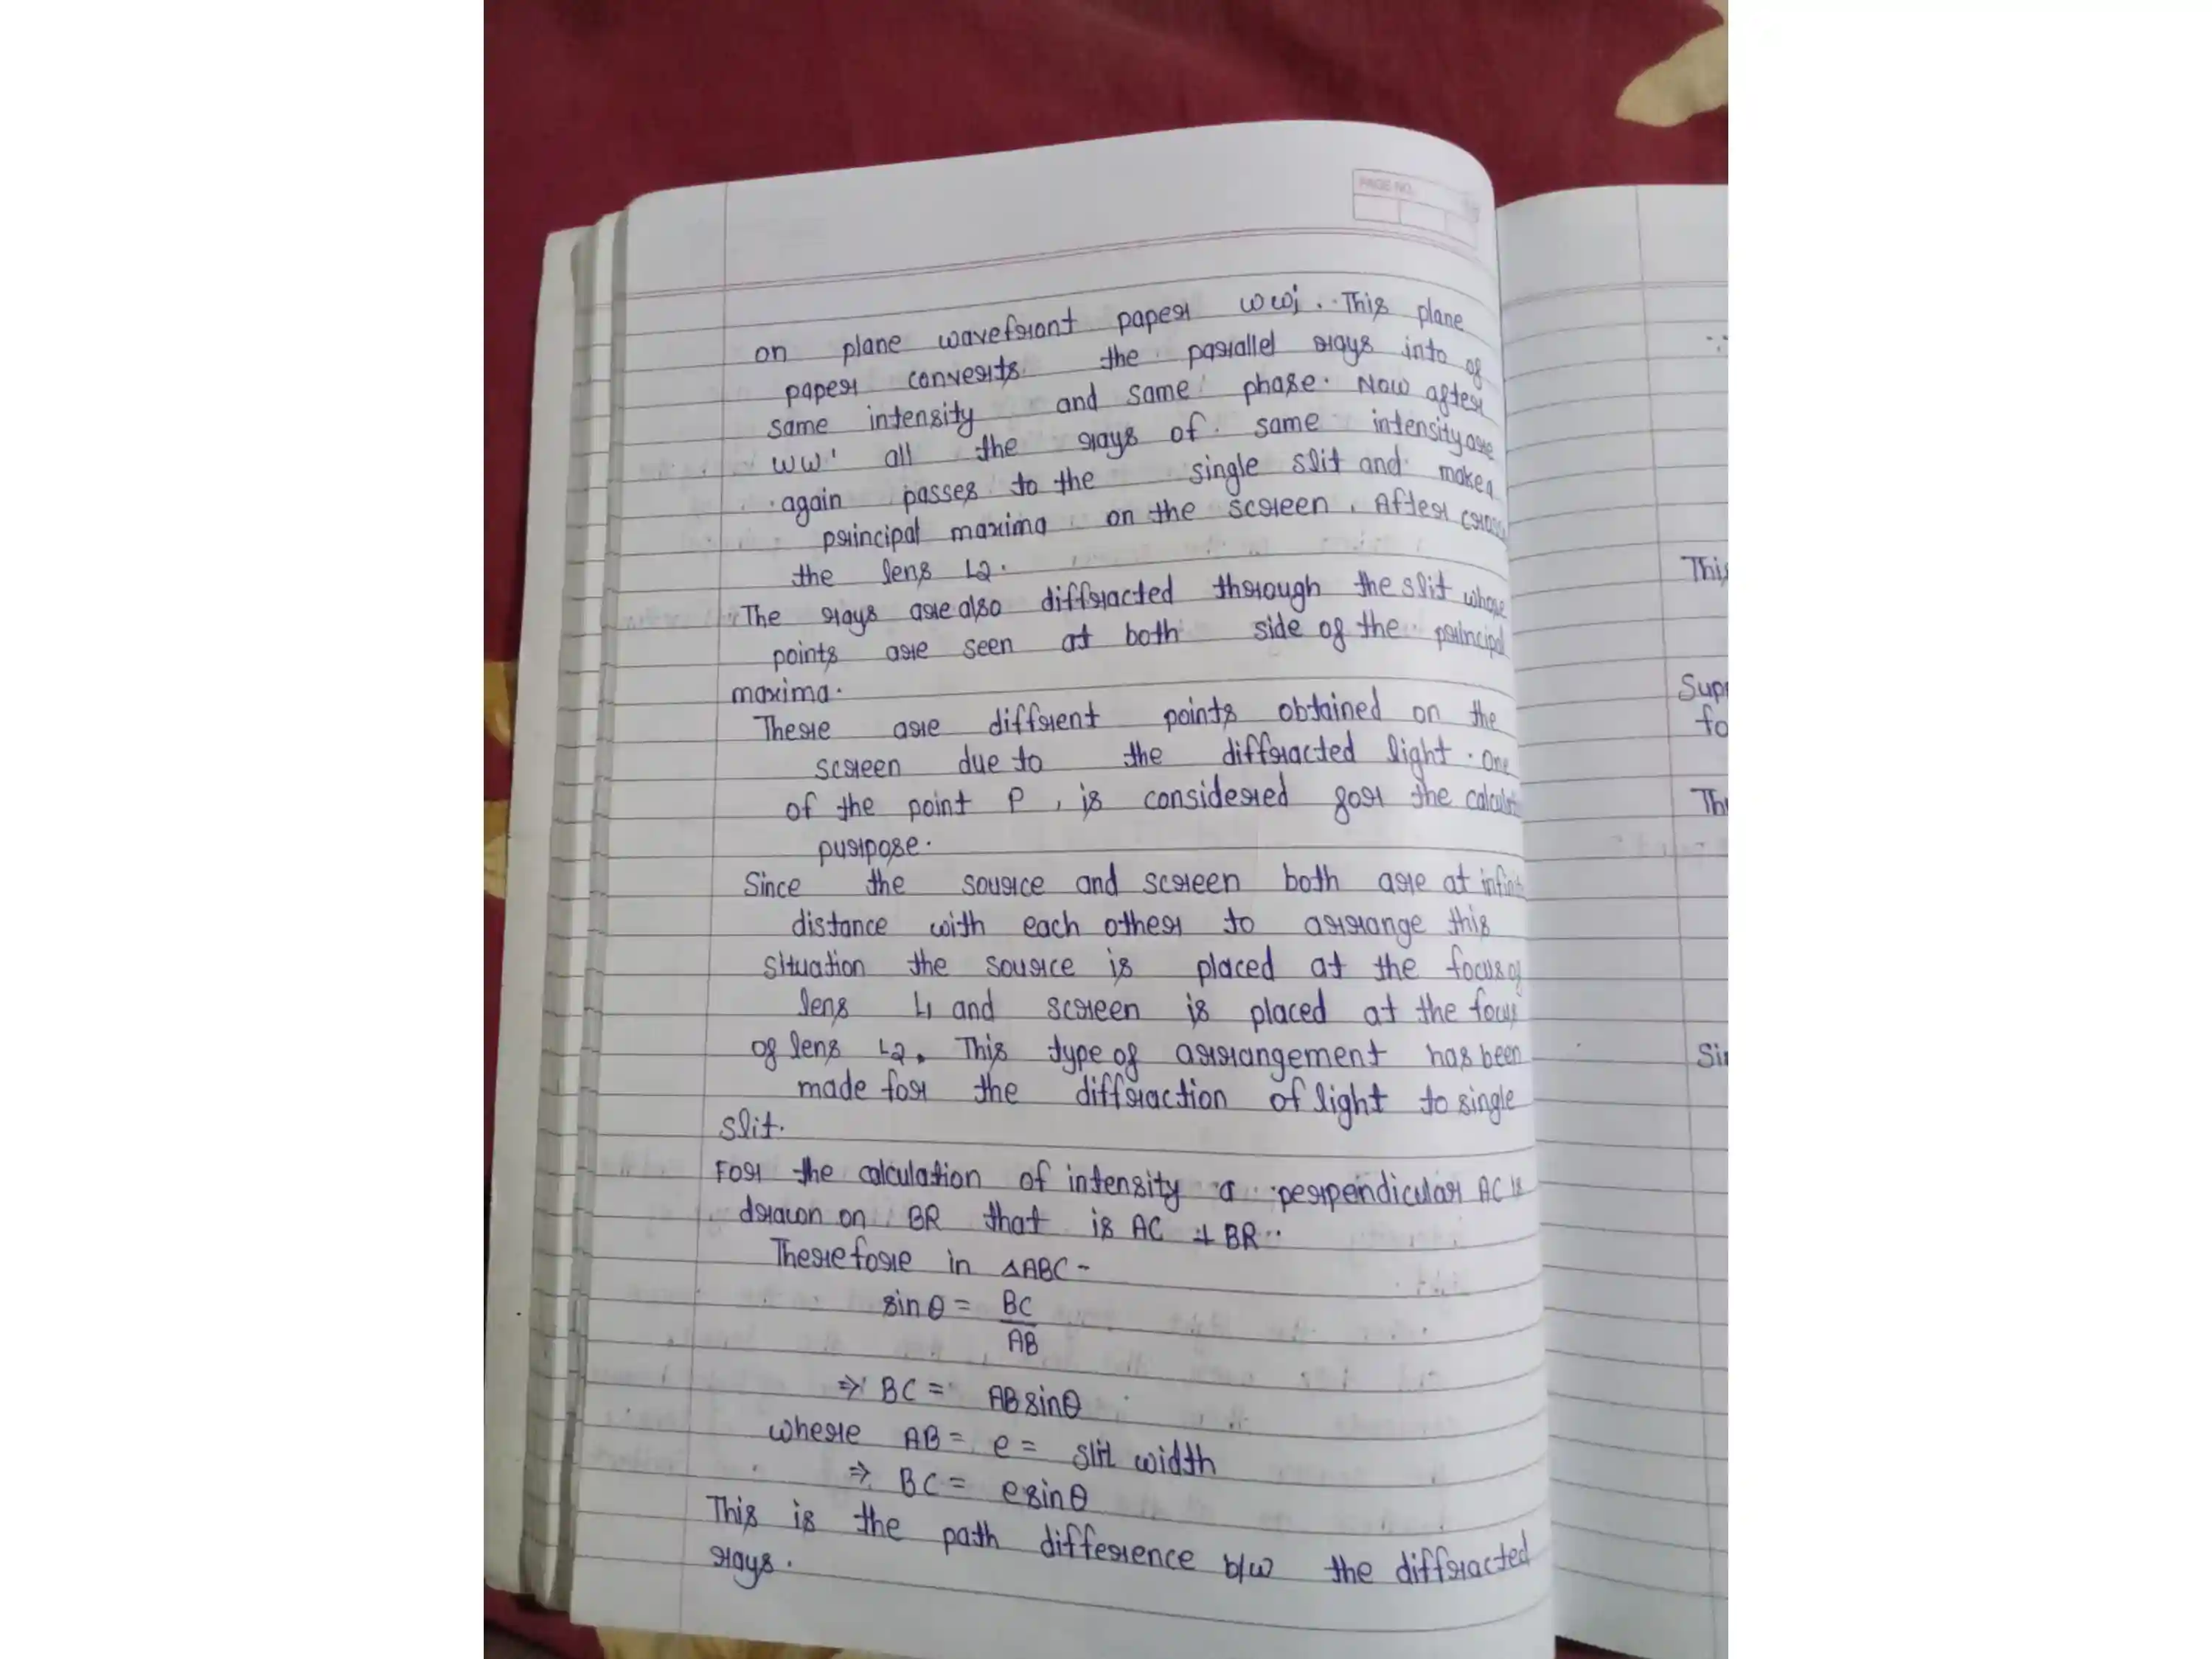 PAGE NO.
on plane wavefront paper ww'. This plane
paper converts the parallel rays into of
same intensity and same phase. Now after
ww' all the rays of same intensity are
again passes to the single slit and make a
principal maxima on the screen. After
the lens L2.
The rays are also diffracted through the slit whose
points are seen at both side of the principal
maxima.
There are diffrent points obtained on the
screen due to the diffracted light. One
of the point P, is considered for the
purpose.
Since the source and screen both are at
distance with each other to arrange this
situation the source is placed at the focus of
lens L1 and screen is placed at the focus
of lens L2. This type of arrangement has been
made for the diffraction of light to single
slit.
For the calculation of intensity a perpendicular AC is
drawn on BR that is AC ⊥ BR.
Therefore in △ABC -
sin θ = BC
AB
⇒ BC = AB sinθ
where AB = e = slit width
⇒ BC = e sin θ
This is the path difference b/w the diffracted
rays.
This
Sup
fo
Th
Si